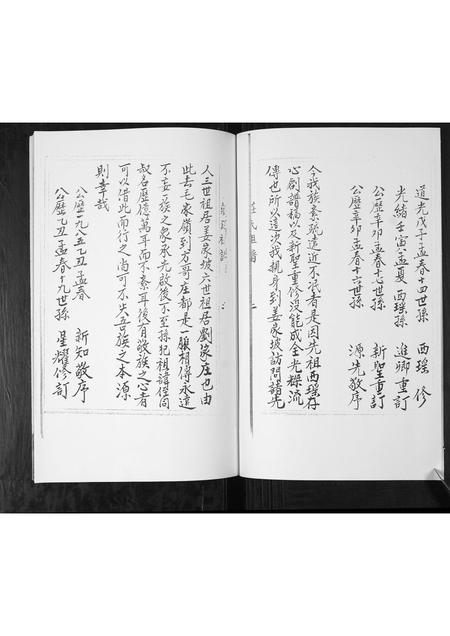 道光戊子孟春十四世孫 西瑶 修
光緒壬寅孟夏西瑶孫 進卿重訂
公歷辛卯孟春十七世孫 新聖重訂
公歷辛卯孟春十六世孫 源先敬序
今我族素疏遠近不混者是因先祖西瑶存
心創譜稿以及新聖重修沒能成全光粿流
傳也所以這次我親身到姜家坡訪問譜先
人三世祖居姜家坡六世祖居劉家庄也由
此去毛家嶺到方哥庄都是一脈相傳永遠
不妄一族之衆承先啟後不至孫犯祖諱侄同
叔名歷億萬年而不紊耳後有敬族之心者
可以借此而行之尚可不失吾族之本源
則幸哉
公歷一九八五乙丑孟春 新知敬序
公歷乙丑孟春十九世孫 星耀修訂